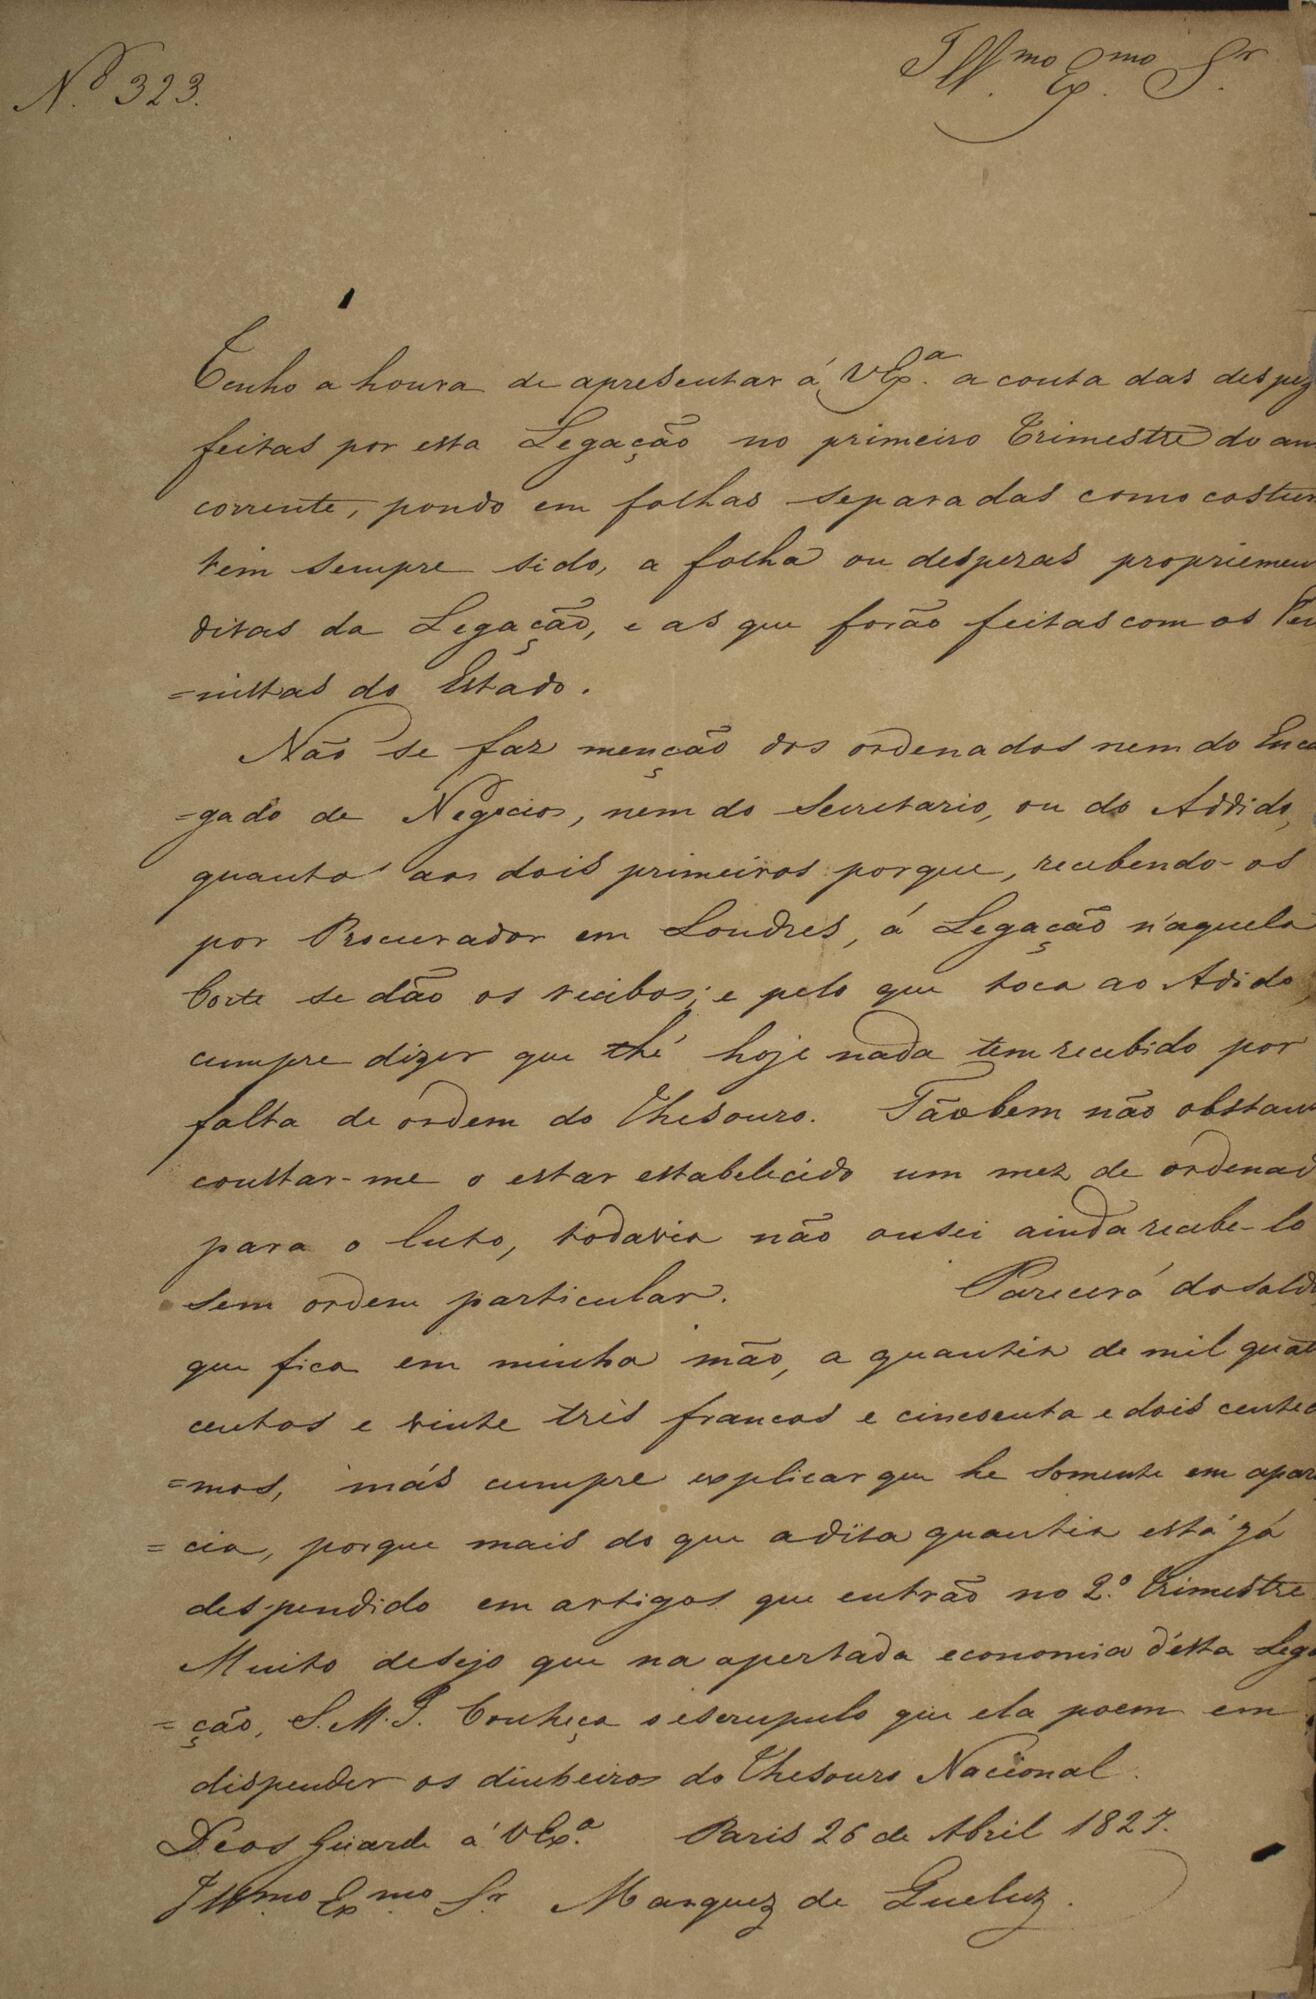 N.º 323.
Ill.mo Ex.mo Sr.
Tenho a honra de apresentar á VEx.a a conta das despez
feitas por esta Legação no primeiro Trimestre do an
corrente, pondo em folhas separadas como costum
tem sempre sido, a folha ou despezas propriemen
ditas da Legação, e as que forão feitas com os Pen
=nistas do Estado.
Não se faz menção dos ordenados nem do Enca
=gado de Negocios, nem do Secretario, ou do Addido,
quanto aos dois primeiros porque, recebendo-os
por Procurador em Londres, á Legação n'aquela
Corte se dão os recibos; e pelo que toca ao Adido,
cumpre dizer que thé hoje nada tem recebido por
falta de ordem do Thesouro. Tãobem não obstan
constar-me o estar estabelecido um mez de ordenad
para o luto, todavia não ousei ainda recebe-lo
sem ordem particular. Parecerá do sald
que fica em minha mão, a quantia de mil quat
centos e vinte três francos e cincoenta e dois cente
=mos, más cumpre explicar que he somente em apar
=cia, porque mais do que a dita quantia está já
despendido em artigos que entrão no 2.º Trimestre.
Muito desejo que na apertada economia d'ésta Lega
=ção, S.M.I. Conheça o escrupulo que ela poem em
dispender os dinheiros do Thesouro Nacional.
Deos Guarde á VEx.a Paris 26 de Abril 1827.
Ill.mo Ex.mo Sr. Marquez de Queluz.